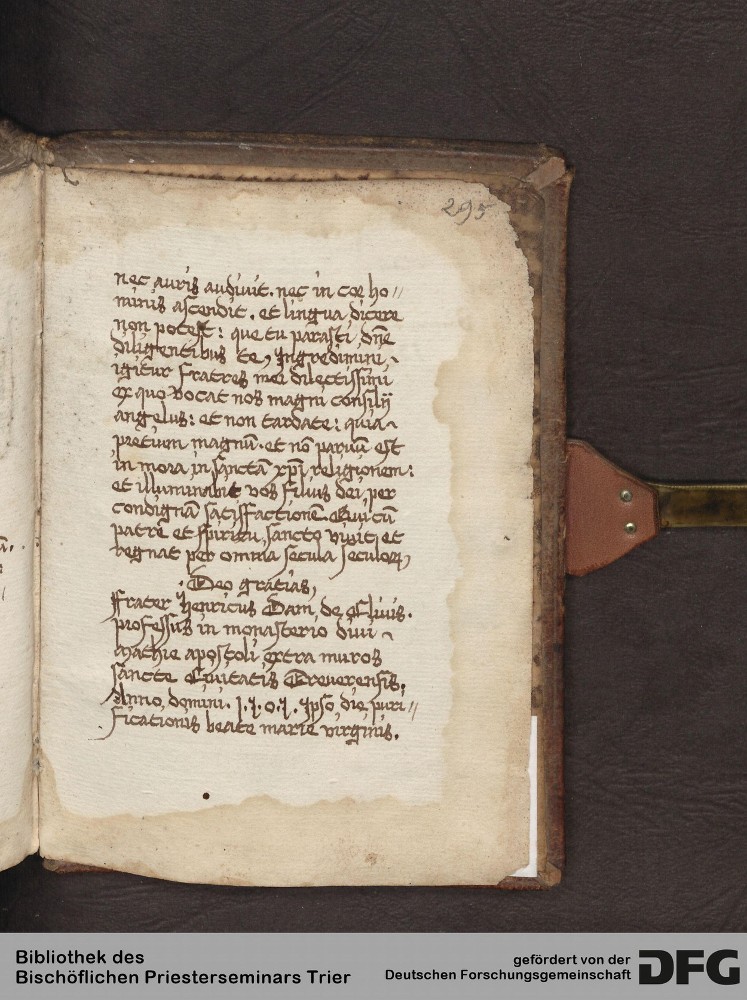 295
nec auris audiuit. nec in cor ho//
minis ascendit. et lingua dicere
non potest: que tu parasti dn̄e
diligentibus te, Ingredimini
igitur fratres mei dilectissimi
ex quo vocat nos magni consilij
angelus: et non tardate: quia
pretium magnū. et nō paruū est
in mora in sanctā xp̄i religionem:
et illuminabit vos filius dei, per
condignā satisfactionē. Qui cū
patre et spiritu sancto viuit et
regnat per omnia secula seculorꝝ,
.Deo gratias,
Frater Henricus Dam de Cliuis.
professus in monasterio diui
Mathie apostoli extra muros
sancte Ciuitatis Treuerensis.
Anno domini. Ipso die puri//
ficationis beate marie virginis.
Bibliothek des
Bischöflichen Priesterseminars Trier
gefördert von der
Deutschen Forschungsgemeinschaft
DFG